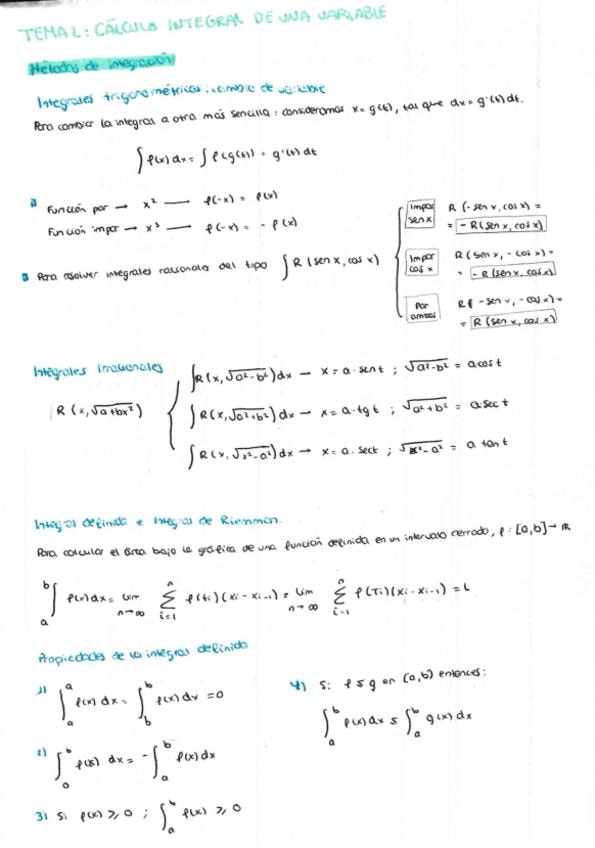 TEMA 2: CÁLCULO INTEGRAL DE UNA VARIABLE
Métodos de integración
Integrales trigonométricas: cambio de variable
Para cambiar la integral a otra más sencilla: consideramos x = g(t), tal que dx = g'(t)dt.
∫ f(x)dx = ∫ f(g(t)) · g'(t)dt
Función par → x² — f(-x) = f(x)
Función impar → x³ — f(-x) = - f(x)
Para resolver integrales racionales del tipo ∫ R(sen x, cos x)
Impar sen x R(-sen x, cos x) =
= - R(sen x, cos x)
Impar cos x R(sen x, - cos x) =
= - R(sen x, cos x)
Par ambos R(-sen x, - cos x) =
= R(sen x, cos x)
Integrales irracionales
R(x, √a+bx²)
∫ R(x, √a²-b²)dx → x = a · sent ; √a²-b² = a cos t
∫ R(x, √a²+b²)dx → x = a · tg t ; √a²+b² = a · sec t
∫ R(x, √x²-a²)dx → x = a · sect ; √x²-a² = a tan t
Integral definida e Integral de Riemman.
Para calcular el área bajo la gráfica de una función definida en un intervalo cerrado, f: [a,b] → ℝ
∫ₐᵇ f(x)dx = lim n→∞ Σ i=1 n f(ti)(xi - xi-1) = lim n→∞ Σ i=1 n f(Ti)(xi - xi-1) = L
Propiedades de la integral definida
1) ∫ₐᵃ f(x) dx = ∫ b b f(x) dx = 0
2) ∫ b f(x) dx = - ∫ₐᵇ f(x)dx
3) Si f(x) ≥ 0 ; ∫ₐᵇ f(x) ≥ 0
4) Si f ≤ g en [a,b] entonces:
∫ₐᵇ f(x)dx ≤ ∫ₐᵇ g(x)dx